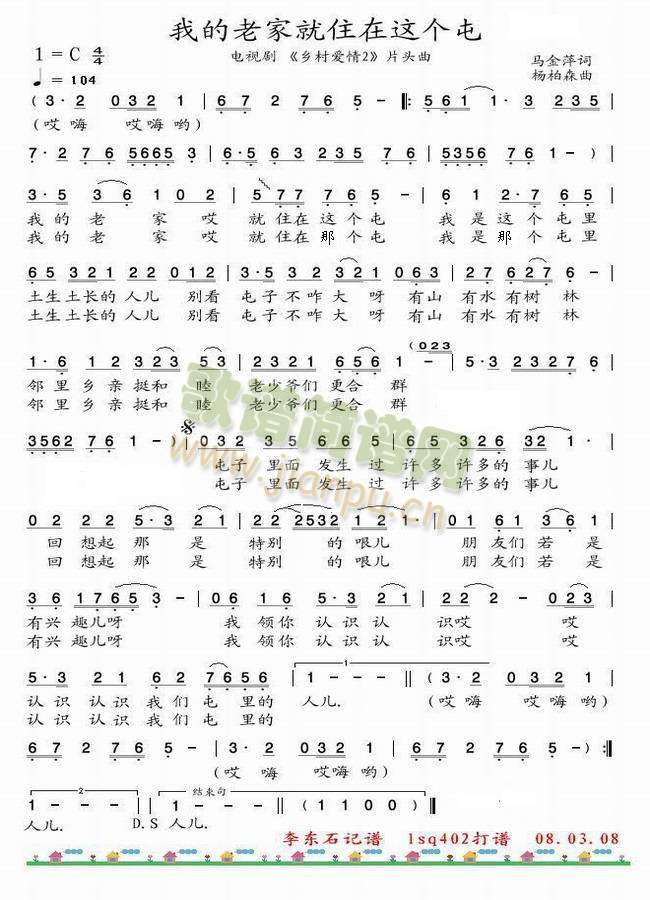 我的老家就住在这个屯
1=C 4/4
电视剧 《乡村爱情2》片头曲
马金萍词
♩=104
杨柏森曲
(3·2 032 1 2 | 6 7 2 7 6 5 - |: 561 1 1·3 235
(哎嗨 哎嗨哟)
7·2 76 5665 3·5 | 6·5 63 235 76 | 5356 76 1 - ) |
3·5 36 1 0 2 | 577 7 765 - | 61 2·7 65 |
我的 老 家 哎 就住在这个屯 我是这个屯里
我的 老 家 哎 就住在那个屯 我是那个屯里
65 321 22 012 | 3·5 32 321 063 | 27 627 6 - |
土生土长的人儿 别看 屯子不咋大 呀 有山 有水有树 林
土生土长的人儿 别看 屯子不咋大 呀 有山 有水有树 林
(023
1·6 12 323 53 | 2321 61 656 1 - | 5·3 2327 6 - |
邻里乡亲挺和 睦 老少爷们更合 群
邻里乡亲挺和 睦 老少爷们更合 群
歌谱简谱网
www.jianpu.cn
3562 76 1 - ) | 032 35 66 5 | 65 326 32 1· |
屯子 里面 发生 过 许多 许多的 事儿
屯子 里面 发生 过 许多 许多的 事儿
02 22 5·3 21 | 22 2532 1 21 - | 02 61 361 |
回 想起 那 是 特别 的 哏儿 朋 友们若是
回 想起 那 是 特别 的 哏儿 朋 友们若是
36 1765 3 - | 06 165 2 3 | 2 - - 1235 |
有兴 趣儿呀 我 领你 认识认识 哎
有兴 趣儿呀 我 领你 认识认识 哎
5·3 21 62 7656 | 1 - - - | (3·2 032 1 2 |
认识 认识 我们 屯里的 人儿. (哎嗨 哎嗨哟)
认识 认识 我们 屯里的
67 2 76 5 - | 3·2 032 1 2 | 67 2 76 5 - ) :|
(哎嗨 哎嗨哟)
2 结束句
1 - - - | 1 - - - | 1 1 0 0 ||
人儿. D.S 人儿.
李东石记谱 lsq402打谱 08.03.08